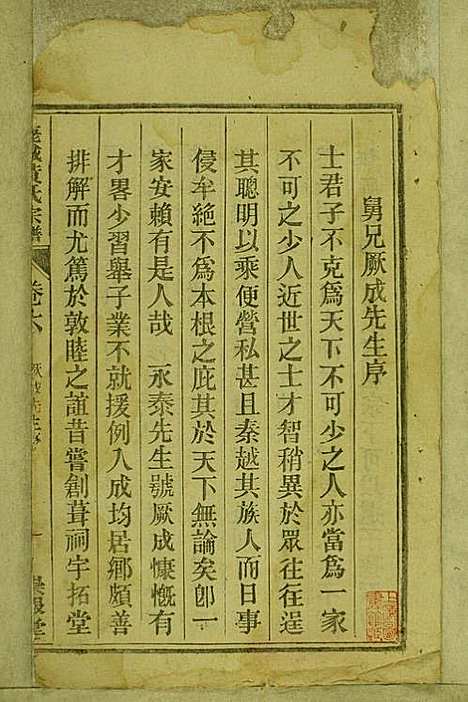 舅兄厥成先生序
士君子不克爲天下不可少之人亦當爲一家
不可之少人近世之士才智稍異於眾往往逞
其聰明以乘便營私甚且秦越其族人而日事
侵牟絕不爲本根之庇其於天下無論矣卽一
家安賴有是人哉 永泰先生號厥成慷慨有
才畧少習舉子業不就援例入成均居鄉頗善
排解而尤篤於敦睦之誼昔嘗創葺祠宇拓堂
黃氏宗譜 卷六